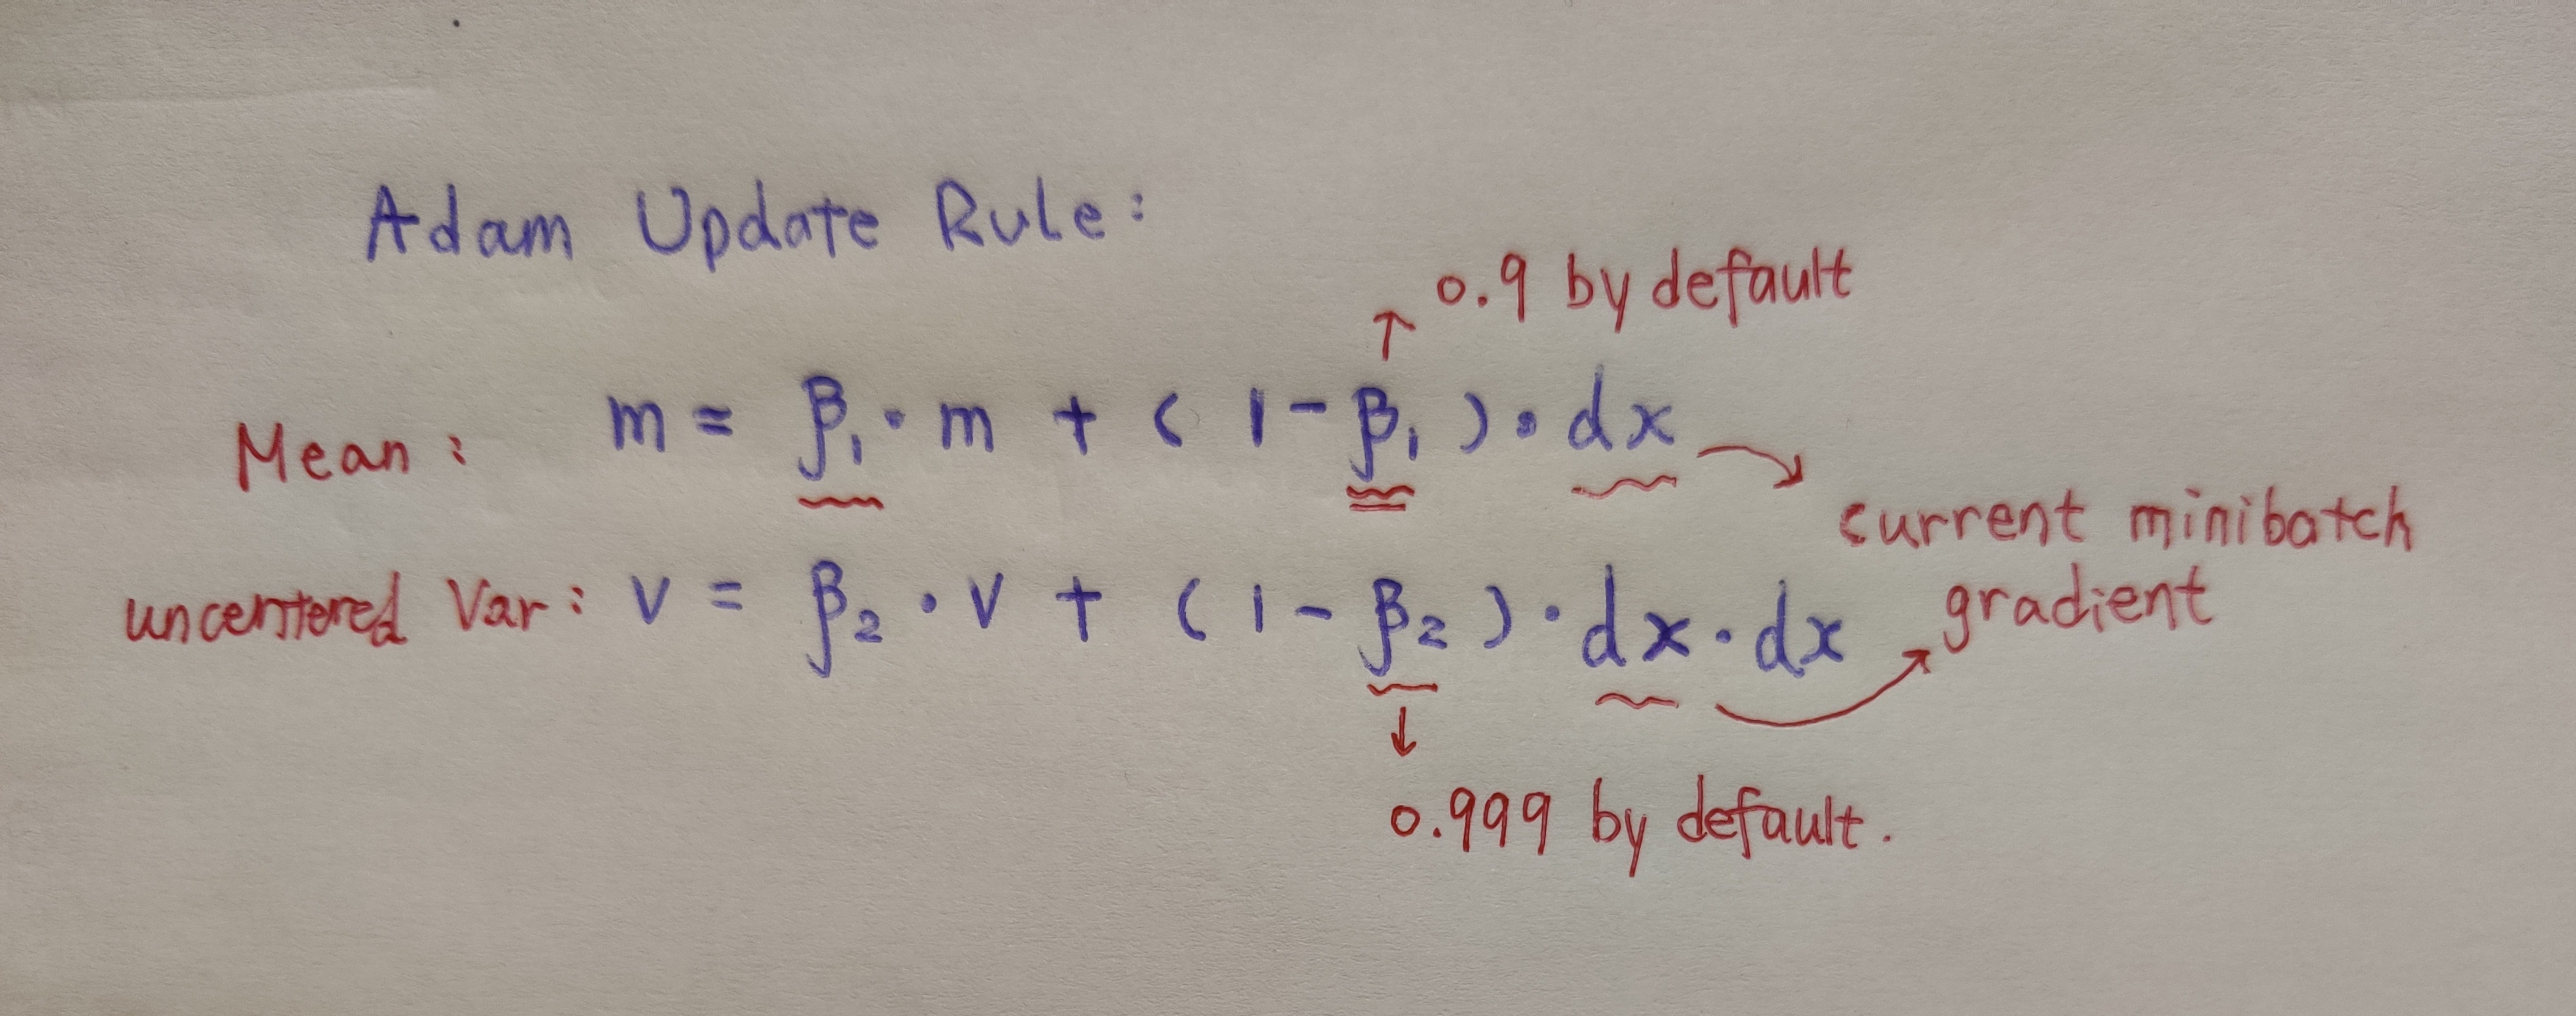 Adam Update Rule:
↑ 0.9 by default
Mean: m = β₁ · m + (1 - β₁) · dx
current minibatch
gradient
uncentered Var: v = β₂ · v + (1 - β₂) · dx · dx
↓
0.999 by default.